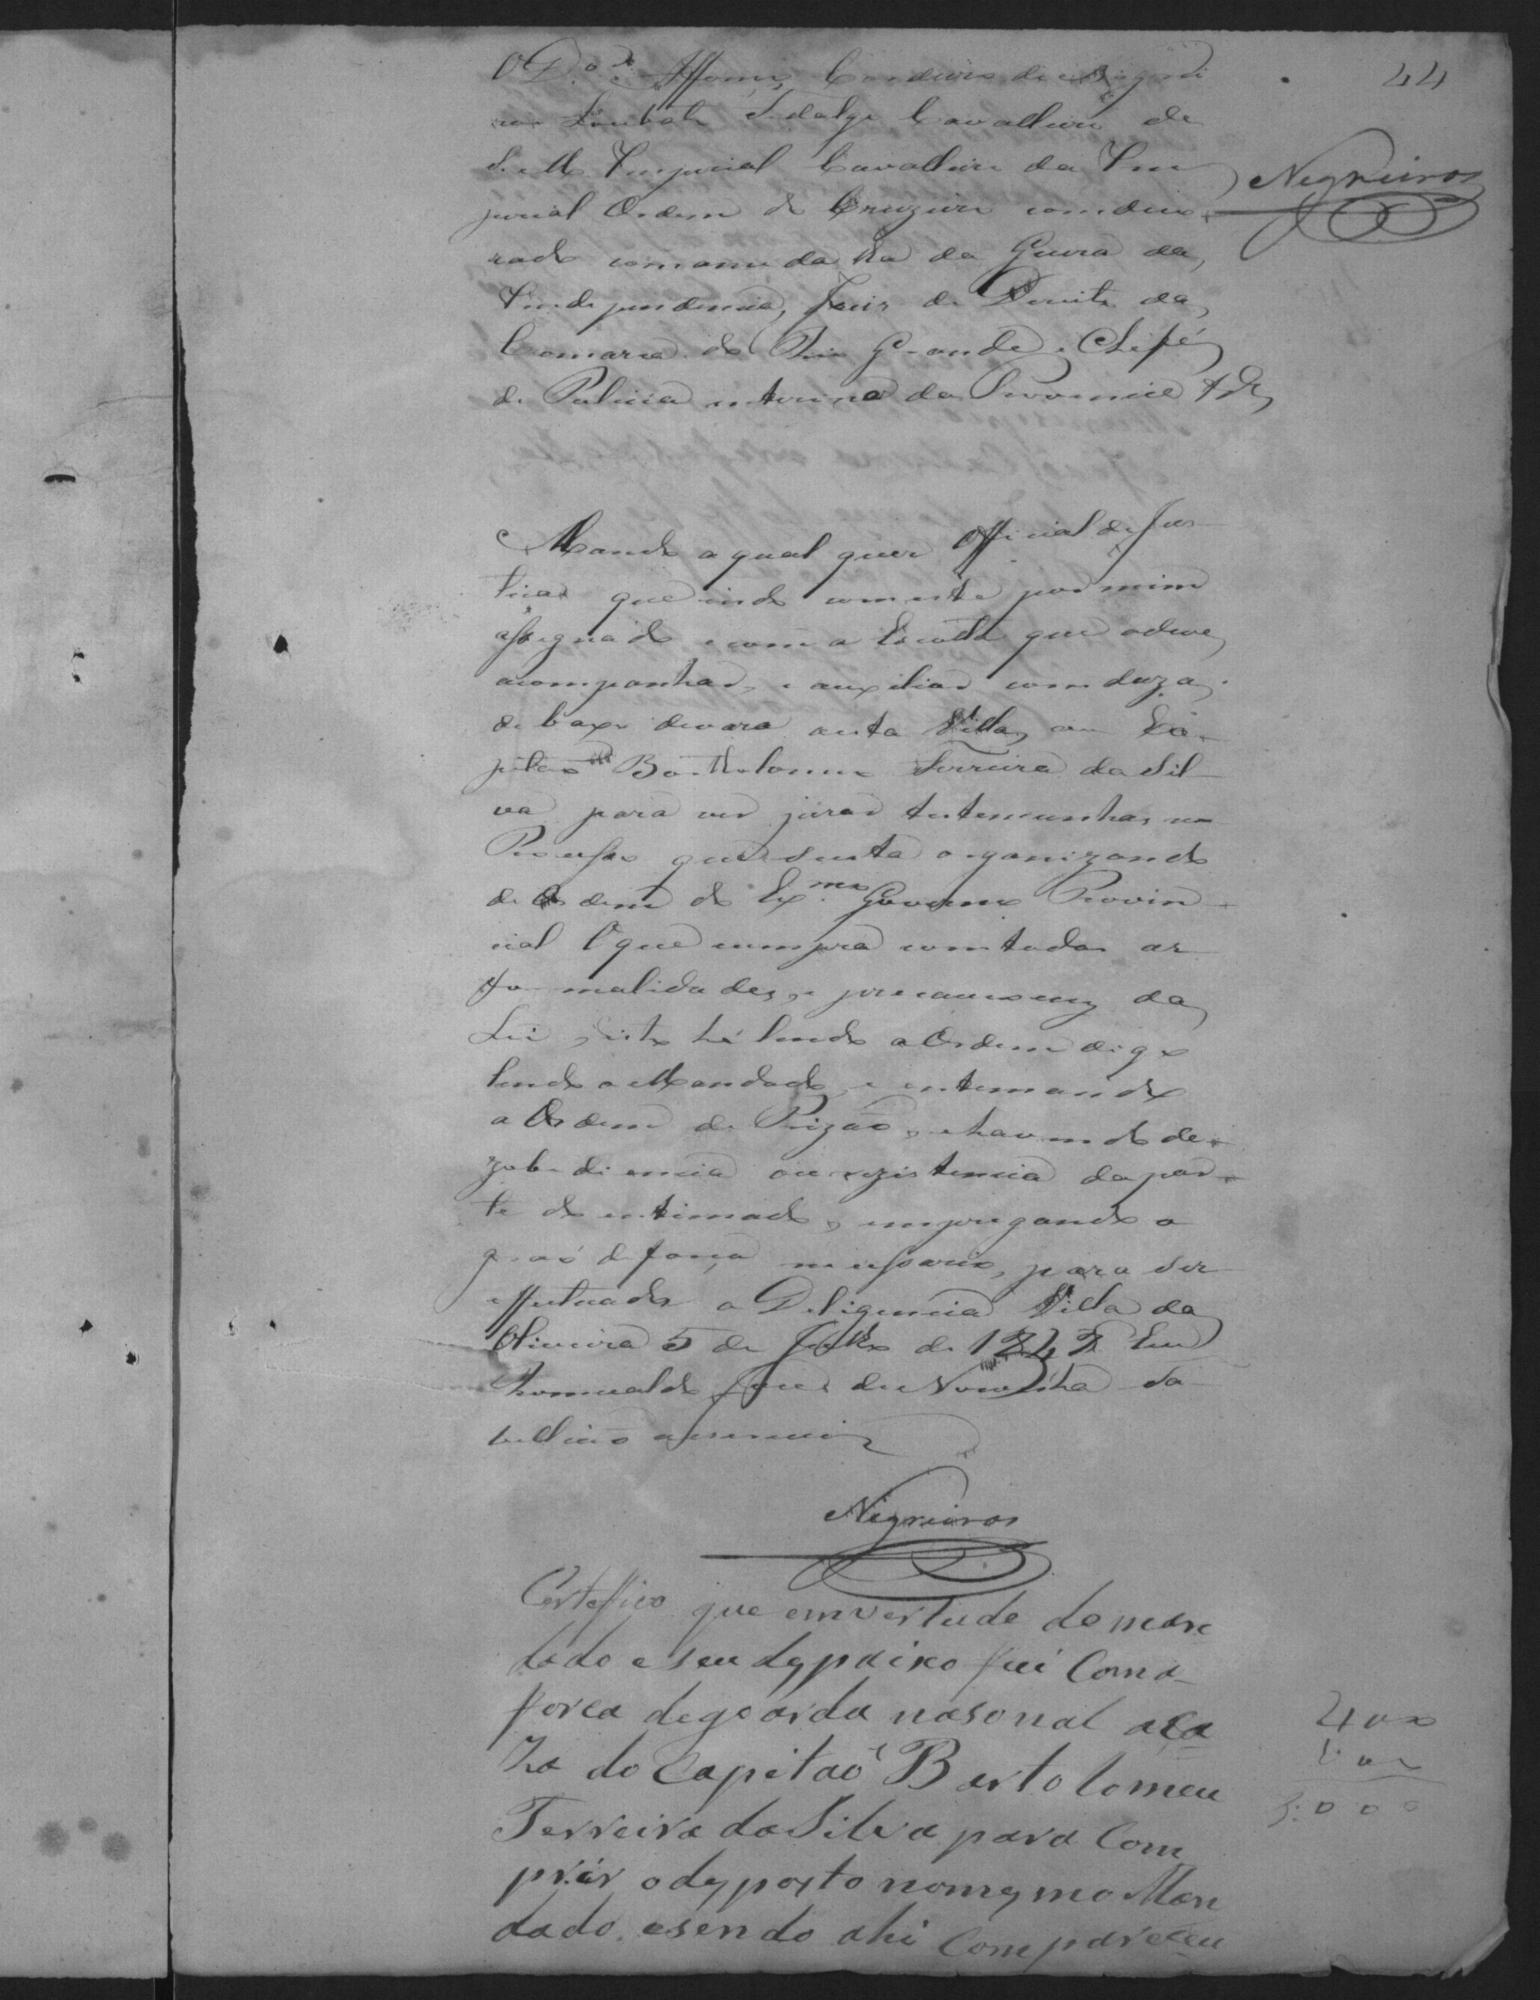 44
O D.or Affonço Cordeiro de Negrei
ros Lobato Fidalgo Cavalleiro de
S. M. Imperial Cavalleiro da Im
perial Ordem do Cruzeiro condeco
rado com a medalha da Guerra da
Independencia, Juis de Dereito da
Comarca do Rio Grande, e Chefe
de Policia interino da Provincia &&
Negreiros
Mando a qual quer Official de Jus
tiça que indo com este por mim
assignado e com a Escolta que o deve
acompanhar, e auxiliar condusa
debaxo de vara a esta Villa, ao Ca
pitão Bartholomeu Ferreira da Sil
va para ver jurar testemunhas no
Processo que se esta organizando
de Ordem do Ex.mo Governo Provin
cial O que cumpra com todas as
formalidades, e precauçoens da
Lei, isto hé lendo a Ordem digo
lendo o Mandado, e intimando
a Ordem de Prizão, e havendo de
zobediencia ou rezistencia da par
te do intimado, empregando o
gráo de força necessario, para ser
effectuada a Deligencia Villa da
Oliveira 5 de Julho de 1842 Eu
Romualdo José de Noronha Ta
bellião a escrevi
Negreiros
Certefico que em vertude do man
dado e seu despaixo fui Com a
forca de goarda nasonal a ca
za do Capitaõ Bartolomeu
Ferreira da Silva para Com
prir o desposto no mesmo Man
dado, e sendo ahi Compareceu